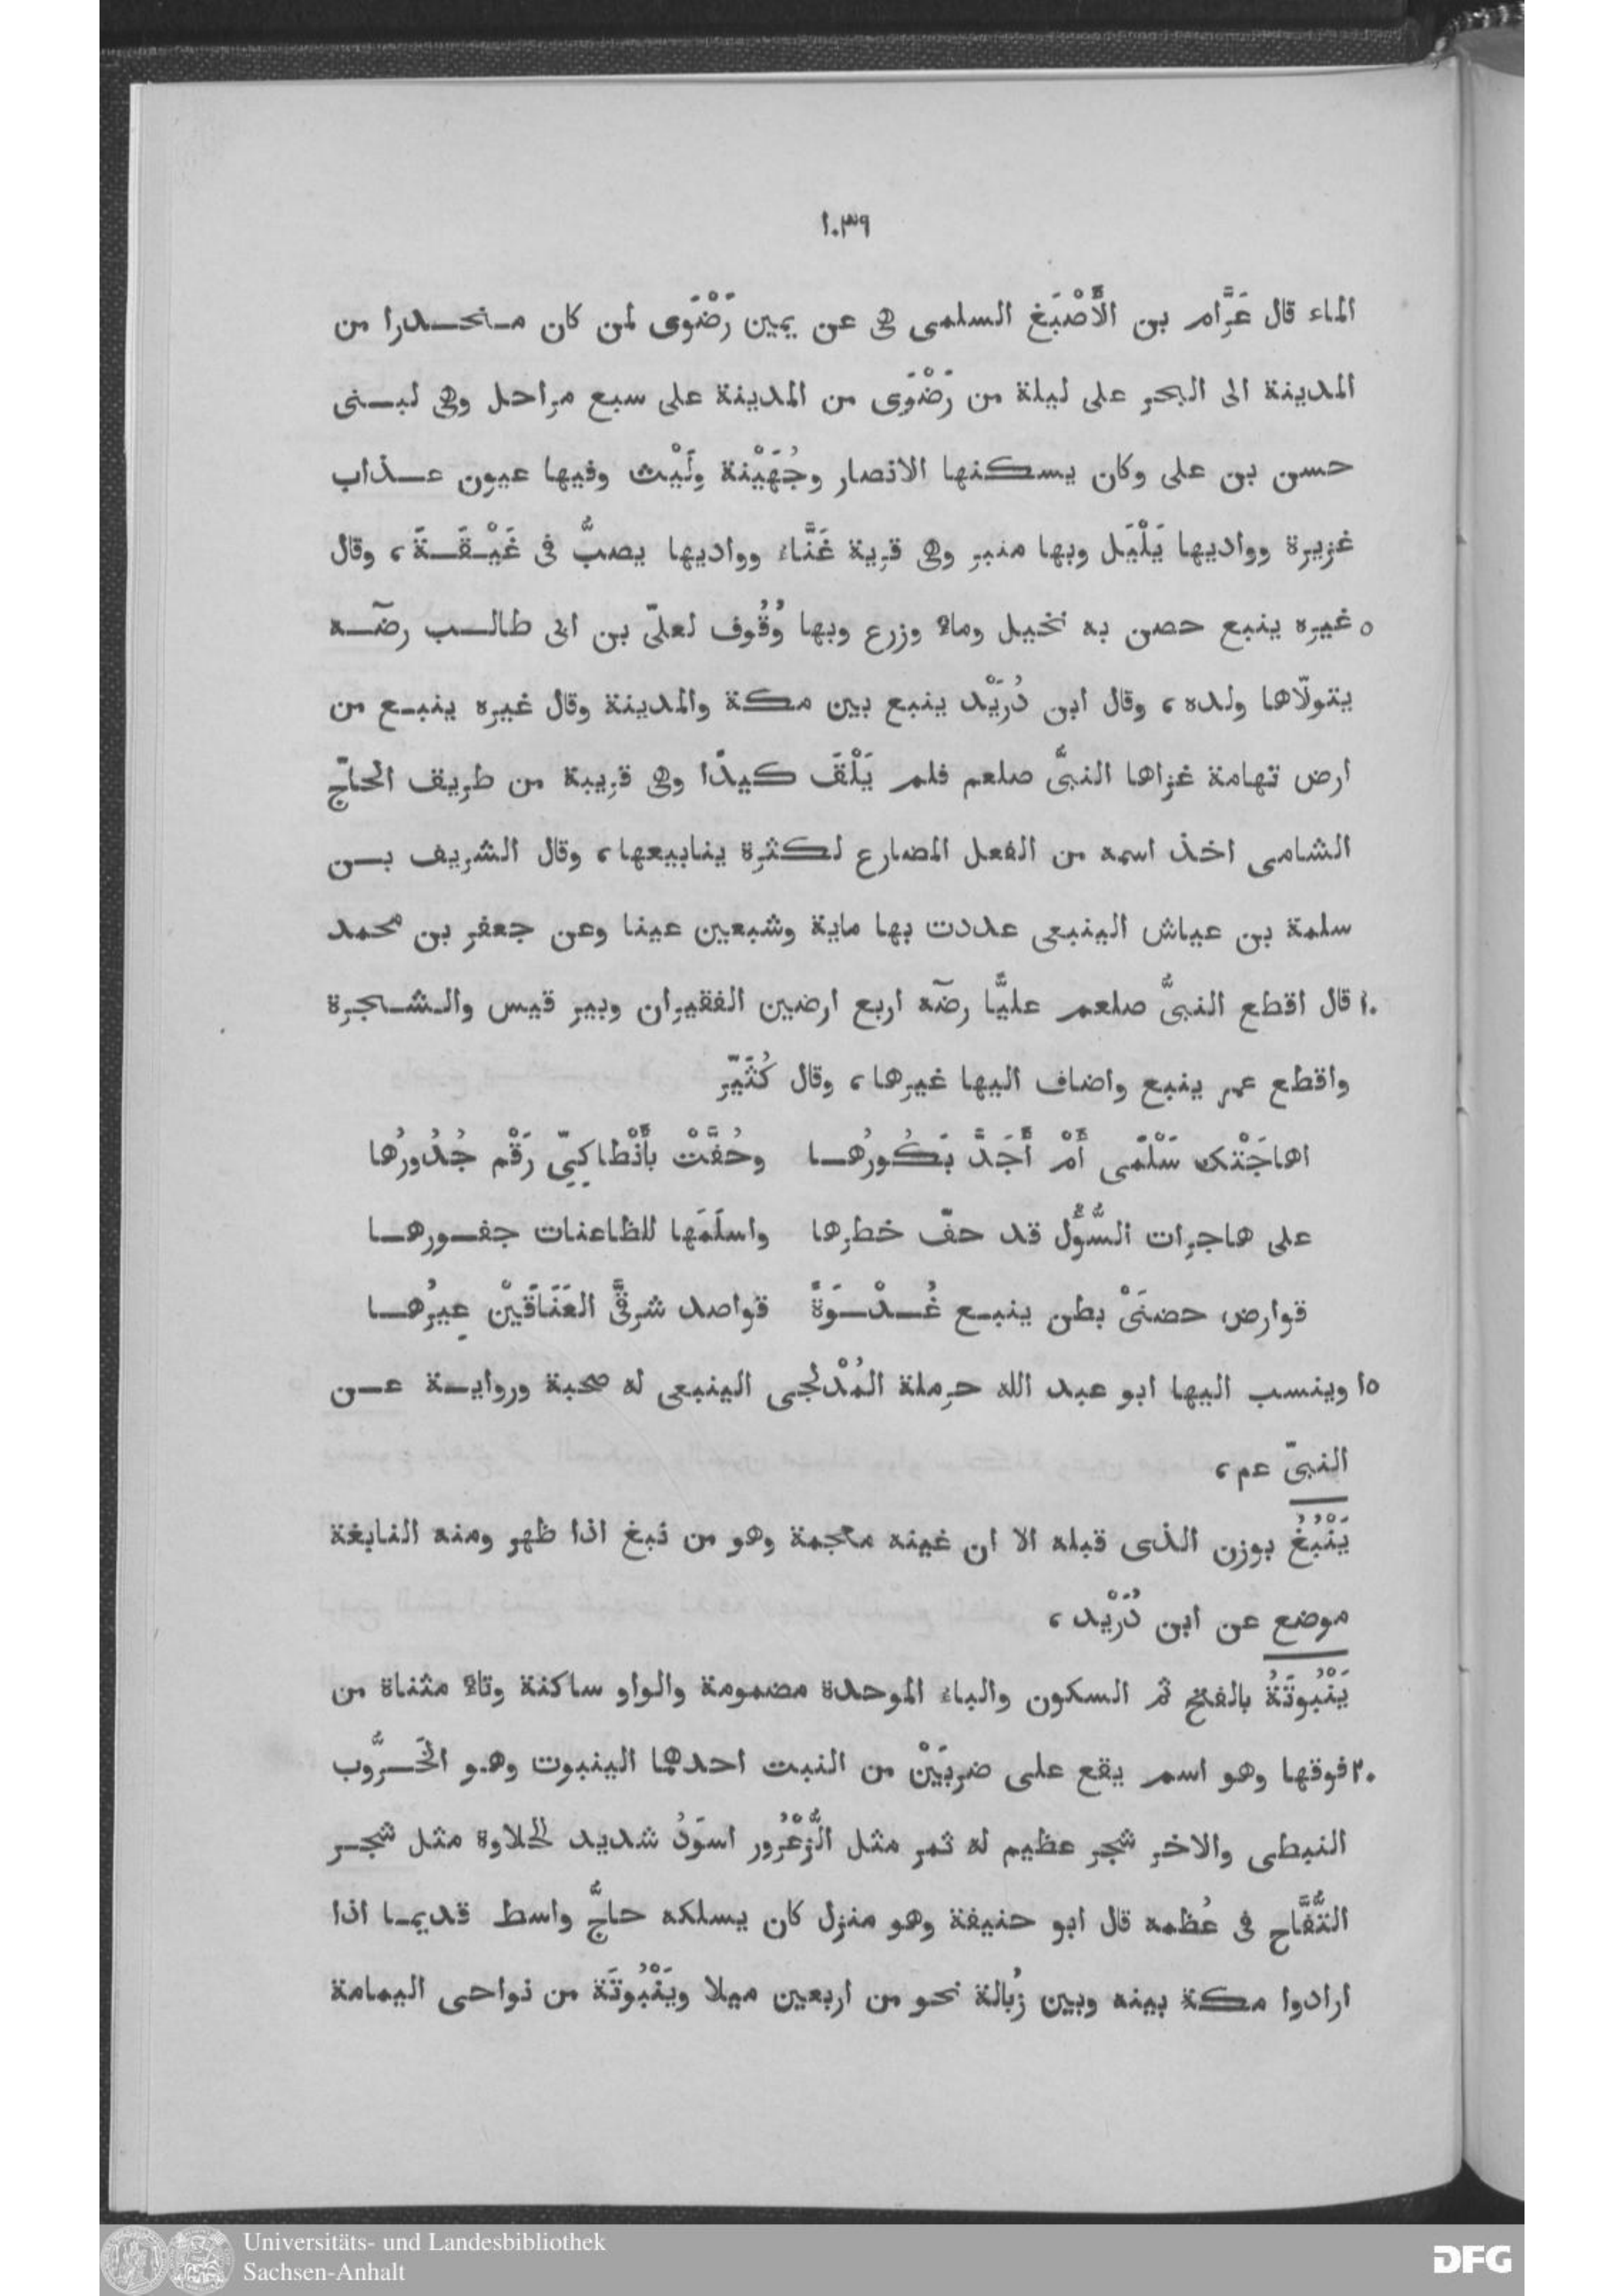 ١٠٣٩
الماء قال عَرَّام بن الأَصْبَغ السلمى هى عن يمين رَضْوَى لمن كان منحدرا من
المدينة الى البحر على ليلة من رَضْوَى من المدينة على سبع مراحل وهى لبنى
حسن بن على وكان يسكنها الانصار وجُهَيْنة ولَيْث وفيها عيون عذاب
غزيرة وواديها يَلْيَل وبها منبر وهى قرية غَنَّاء وواديها يصبُّ فى غَيْقَةَ، وقال
٥ غيره ينبع حصن به نخيل وماء وزرع وبها وُقُوف لعلىّ بن ابى طالب رضّه
يتولّاها ولده، وقال ابن دُرَيْد ينبع بين مكة والمدينة وقال غيره ينبع من
ارض تهامة غزاها النبىُّ صلعم فلم يَلْقَ كيدًا وهى قريبة من طريف الحاجّ
الشامى اخذ اسمه من الفعل المضارع لكثرة ينابيعها، وقال الشريف بن
سلمة بن عياش الينبعى عددت بها ماية وشبعين عينا وعن جعفر بن محمد
١٠ قال اقطع النبىُّ صلعم عليًّا رضّه اربع ارضين الفقيران وبير قيس والشجرة
واقطع عمر ينبع واضاف اليها غيرها، وقال كُثَيّر
اهاجَتْك سَلْمَى أَمْ أَجَدَّ بَكُورُها وحُفَّتْ بأَنْطاكِىّ رَقْم جُدُورُها
على هاجرات السُّؤْل قد حفّ خطرها واسلَمَها للظاعنات جفورها
قوارض حضنَىْ بطن ينبع غُدْوَةً قواصد شرقىَّ العَنَاقَيْن عِيرُها
١٥ وينسب اليها ابو عبد الله حرملة المُدْلجى الينبعى له صحبة ورواية عن
النبىّ عم،
يَنْبُغُ بوزن الذى قبله الا ان غينه معجمة وهو من نبغ اذا ظهر ومنه النابغة
موضع عن ابن دُرَيْد،
يَنْبُوتَةُ بالفتح ثم السكون والباء الموحدة مضمومة والواو ساكنة وتاء مثناة من
٢٠ فوقها وهو اسم يقع على ضربَيْن من النبت احدهما الينبوت وهو الخَرُّوب
النبطى والاخر شجر عظيم له ثمر مثل الزُّعْرُور اسوَدُ شديد الحلاوة مثل شجر
التُّفَّاح فى عُظمه قال ابو حنيفة وهو منزل كان يسلكه حاجُّ واسط قديما اذا
ارادوا مكة بينه وبين زُبالة نحو من اربعين ميلا ويَنْبُوتَة من نواحى اليمامة
Universitäts- und Landesbibliothek
Sachsen-Anhalt
DFG